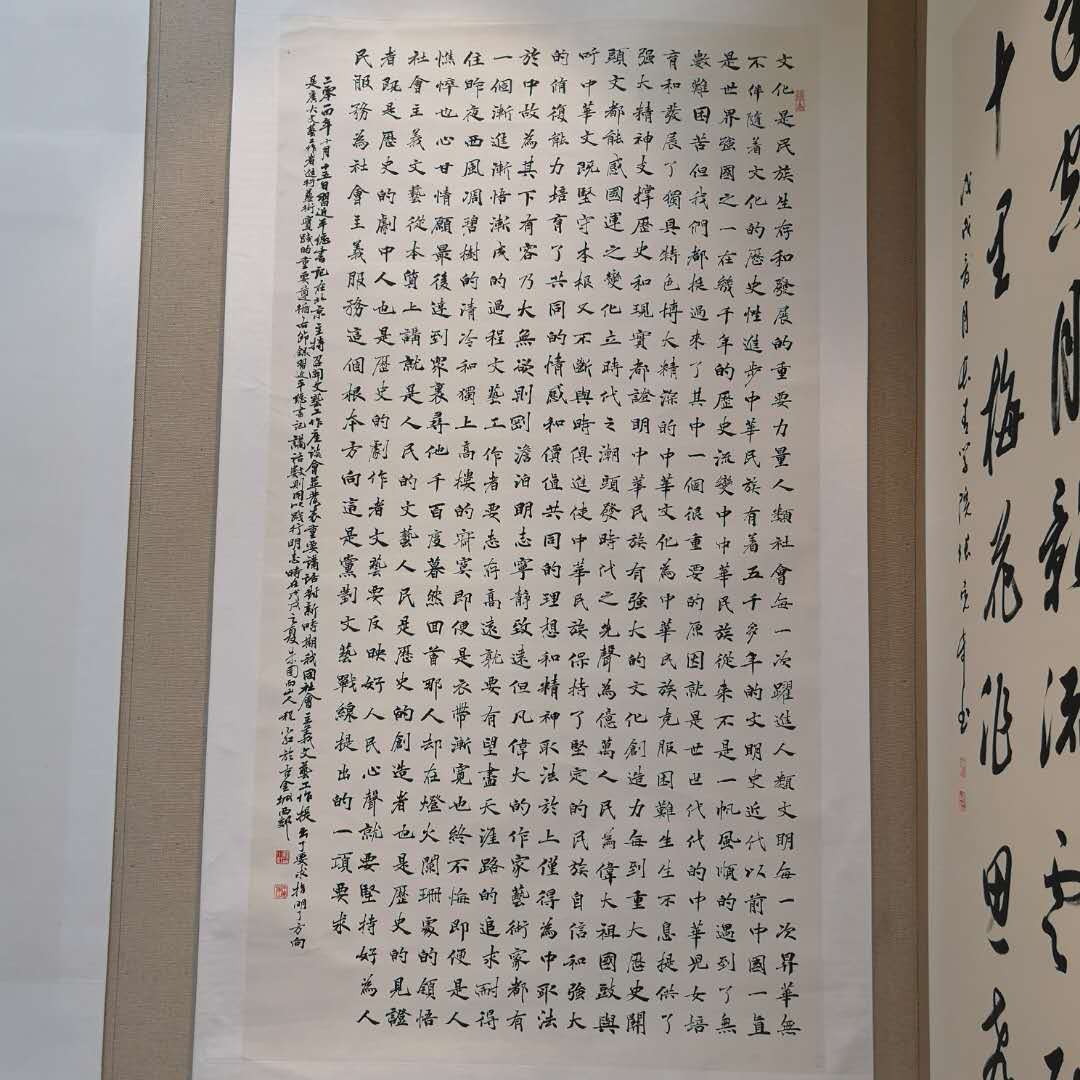 文化是民族生存和發展的重要力量人類社會每一次躍進人類文明每一次昇華無
不伴隨着文化的歷史性進步中華民族有着五千多年的文明史近代以前中國一直
是世界強國之一在幾千年的歷史流變中中華民族從來不是一帆風順的遇到了無
數難困苦但我們都挺過來了其中一個很重要的原因就是世世代代的中華兒女培
育和發展了獨具特色博大精深的中華文化為中華民族克服困難生生不息提供了
强大精神支撑歷史和現實都證明中華民族有强大的文化創造力每到重大歷史關
頭文都能感國運之變化立時代之潮頭發時代之先聲為億萬人民為偉大祖國鼓與
呼中華文既堅守本根又不斷與時俱進使中華民族保持了堅定的民族自信和強大
的脩復能力培育了共同的情感和價值共同的理想和精神取法於上僅得為中取法
於中故為其下有容乃大無欲則剛澹泊明志寧靜致遠但凡偉大的作家藝術家都有
一個漸進漸悟漸成的過程文藝工作者要志存高遠就要有望盡天涯路的追求耐得
住昨夜西風凋碧樹的清冷和獨上高樓的寂寞即便是衣帶漸寬也終不悔即便是人
憔悴也心甘情願最後達到眾裏尋他千百度驀然回首那人却在燈火闌珊處的領悟
社會主義文藝從本質上講就是人民的文藝人民是歷史的創造者也是歷史的見證
者既是歷史的劇中人也是歷史的劇作者文藝要反映好人民心聲就要堅持好為人
民服務為社會主義服務這個根本方向這是黨對文藝戰線提出的一項要求
二零一四年十月十五日習近平總書記在北京主持召開文藝工作座談會並發表重要講話對新時期我國社會主義文藝工作提出了要求指明了方向
是廣大文藝工作者進行藝術實踐的重要遵循右節錄習近平總書記講話數則用以践行明志時在戊戌之夏
十里梅花作